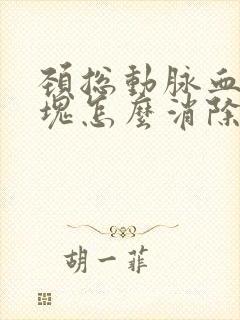 頸總動脈血
塊怎麼消除
胡一菲